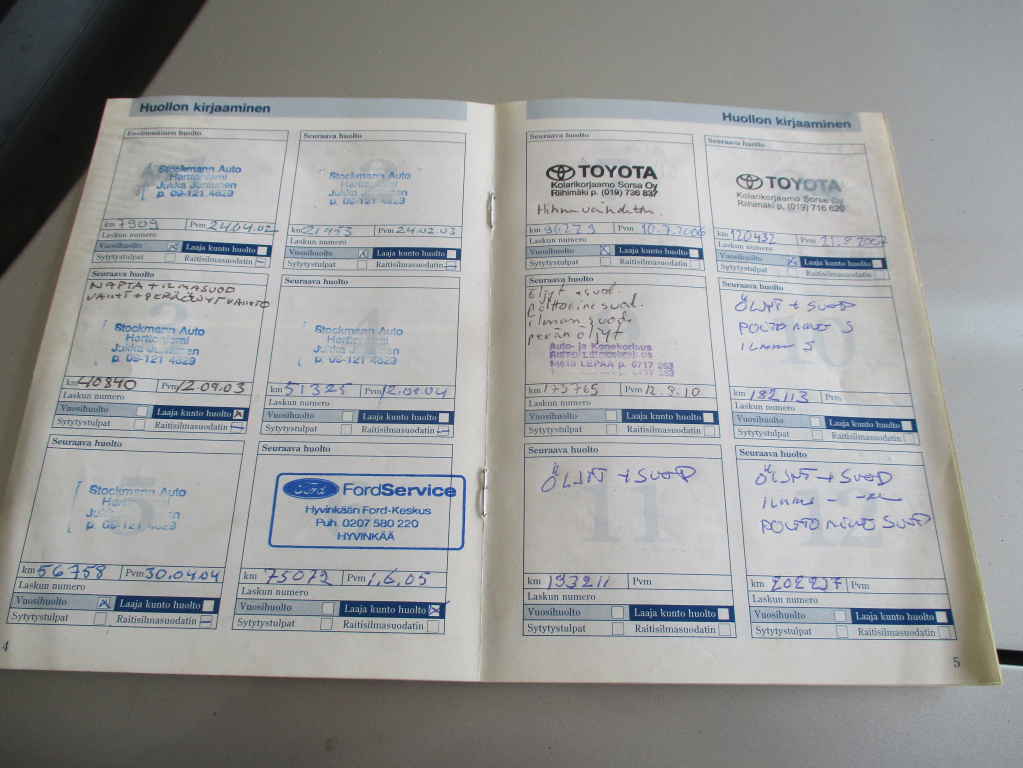 Huollon kirjaaminen
Ensimmäinen huolto
Stockmann Auto
Herttoniemi
Jukka Juntunen
p. 09-121 4629
km 7909 Pvm 24.04.02
Laskun numero
Vuosihuolto Laaja kunto huolto
Sytytystulpat Raitisilmasuodatin
Seuraava huolto
Stockmann Auto
Herttoniemi
Jukka Juntunen
p. 09-121 4629
km 21953 Pvm 24.02.03
Laskun numero
Vuosihuolto Laaja kunto huolto
Sytytystulpat Raitisilmasuodatin
Seuraava huolto
NAFTA + ILMASUOD
VAIHT + PERÄÖLJYT VAIHTO
Stockmann Auto
Herttoniemi
Jukka Juntunen
p. 09-121 4629
km 40840 Pvm 12.09.03
Laskun numero
Vuosihuolto Laaja kunto huolto
Sytytystulpat Raitisilmasuodatin
Seuraava huolto
Stockmann Auto
Herttoniemi
Jukka Juntunen
p. 09-121 4629
km 51325 Pvm
Laskun numero
Vuosihuolto Laaja kunto huolto
Sytytystulpat Raitisilmasuodatin
Seuraava huolto
Stockmann Auto
Herttoniemi
Jukka Juntunen
p. 09-121 4629
km 56758 Pvm 30.04.04
Laskun numero
Vuosihuolto Laaja kunto huolto
Sytytystulpat Raitisilmasuodatin
Seuraava huolto
Ford FordService
Hyvinkään Ford-Keskus
Puh. 0207 580 220
HYVINKÄÄ
km 75072 Pvm 1.6.05
Laskun numero
Vuosihuolto Laaja kunto huolto
Sytytystulpat Raitisilmasuodatin
4
Huollon kirjaaminen
Seuraava huolto
TOYOTA
Kolarikorjaamo Sorsa Oy
Riihimäki p. (019) 736 837
Hihna vaihdettu.
km 96279 Pvm 10.7.2006
Laskun numero
Vuosihuolto Laaja kunto huolto
Sytytystulpat Raitisilmasuodatin
Seuraava huolto
TOYOTA
Kolarikorjaamo Sorsa Oy
Riihimäki p. (019) 716 629
km 120432 Pvm 21.8.2007
Laskun numero
Vuosihuolto Laaja kunto huolto
Sytytystulpat Raitisilmasuodatin
Seuraava huolto
Öljyt + suod.
Polttoainesuod.
ilman suod.
perän öljyt
Auto- ja Konekorjaus
RISTO
14610 LEPAA p. 6717 263
km 175765 Pvm 12.9.10
Laskun numero
Vuosihuolto Laaja kunto huolto
Sytytystulpat Raitisilmasuodatin
Seuraava huolto
10
ÖLJYT + SUOD
POLTOAINE S
ILMAN S
km 182113 Pvm
Laskun numero
Vuosihuolto Laaja kunto huolto
Sytytystulpat Raitisilmasuodatin
Seuraava huolto
11
ÖLJYT + SUOD
km 193211 Pvm
Laskun numero
Vuosihuolto Laaja kunto huolto
Sytytystulpat Raitisilmasuodatin
Seuraava huolto
12
ÖLJYT + SUOD
ILMAN - -
POLTOAINE SUOD
km 202237 Pvm
Laskun numero
Vuosihuolto Laaja kunto huolto
Sytytystulpat Raitisilmasuodatin
5